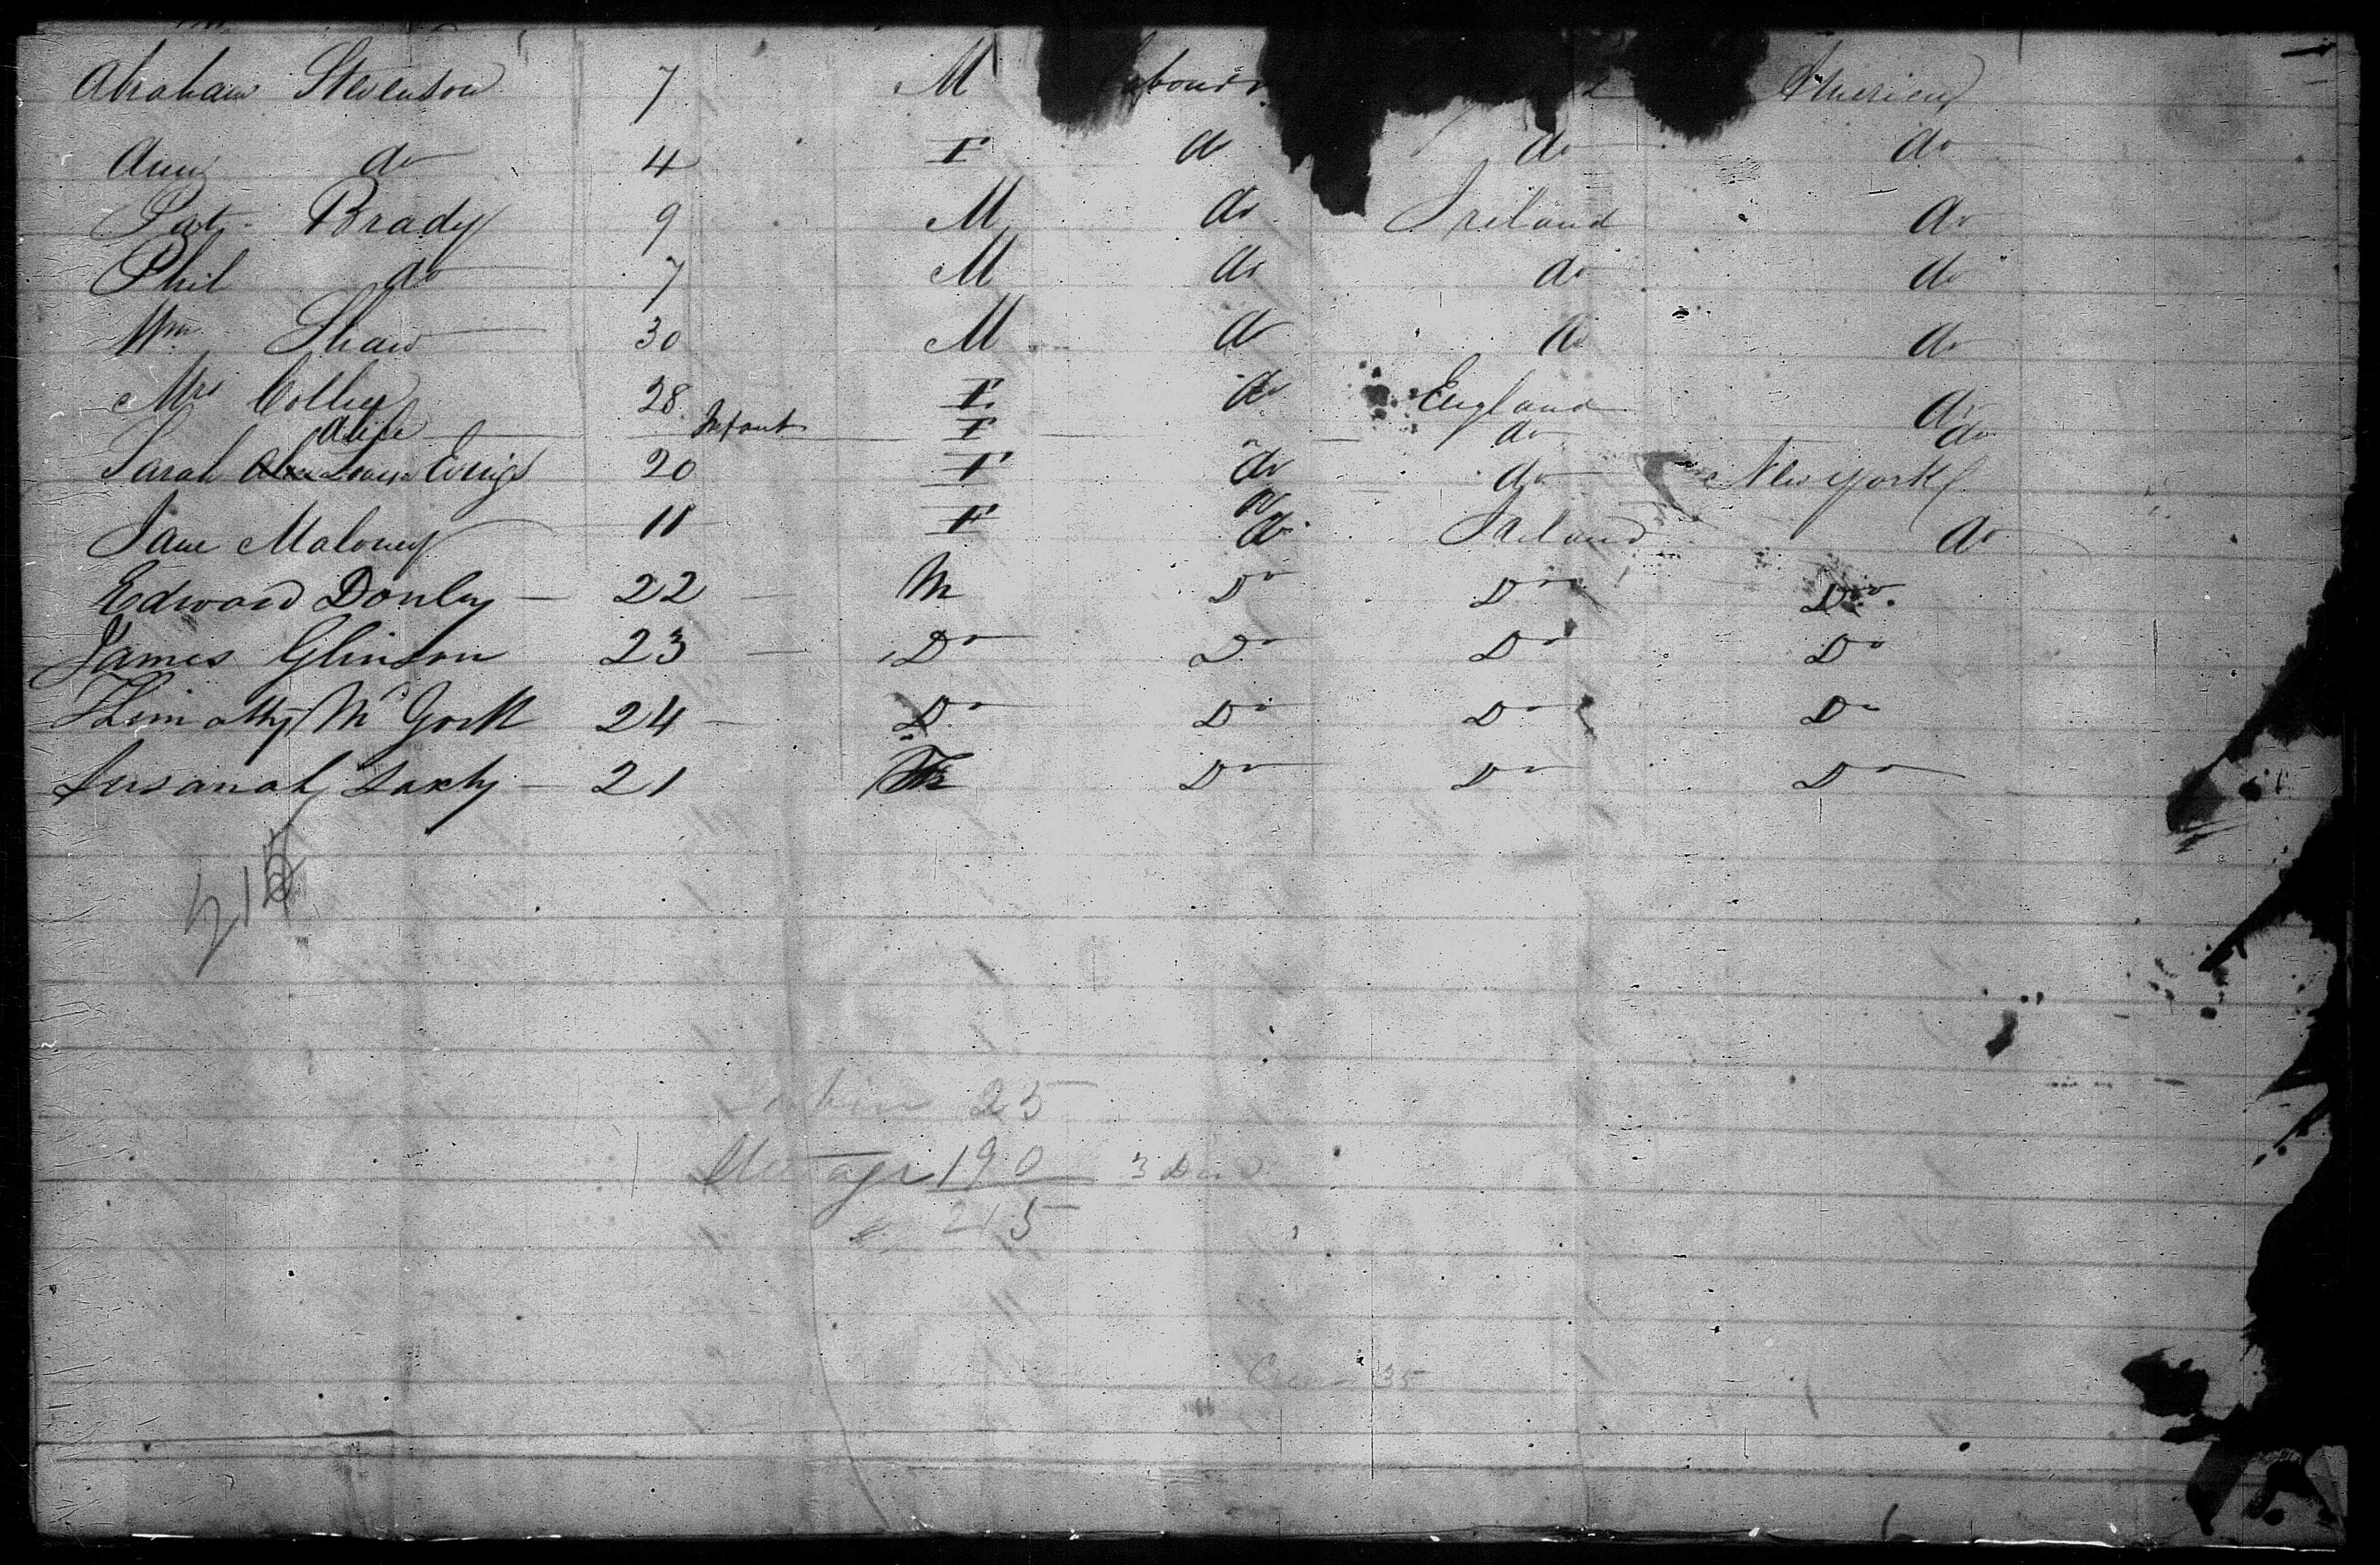 Abraham Stevenson 7 M Labourer America
Ann do 4 F do do do
Pat Brady 9 M do Ireland do
Phil do 7 M do do do
Wm Shaw 30 M do do do
Mrs 28 F do England do
Alice Infant F do do
Sarah 20 F do do New York
do
Jane Maloney 11 F do Ireland do
Edward Donley 22 M Do Do Do
James Glinson 23 Do Do Do Do
24 Do Do Do Do
Susanah 21 F Do Do Do
215
Cabin 25
190 3 Died
215
Crew 35